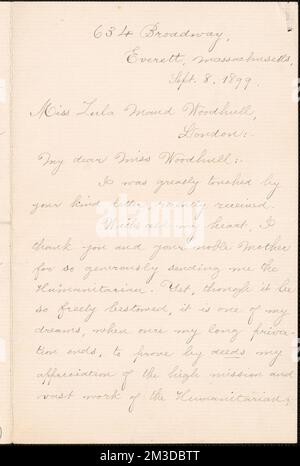 634 Broadway,
Everett, Massachusetts,
Sept. 8, 1899.
Miss Zula Maud Woodhull,
London:-
My dear Miss Woodhull:-
I was greatly touched by
your kind letter recently received.
With all my heart, I
thank you and your noble Mother
for so generously sending me the
Humanitarian. Yet, though it be
so freely bestowed, it is one of my
dreams, when once my long priva-
tion ends, to prove by deeds my
appreciation of the high mission and
vast work of the Humanitarian;
alamy
Image ID: 2M3DBTT
www.alamy.com